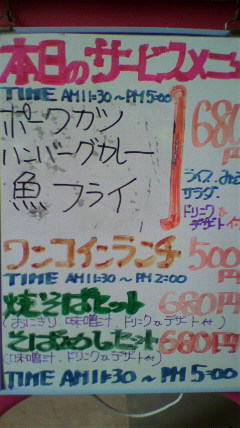 本日のサービスメニュー
TIME AM11:30～PM5:00
ポークカツ
ハンバーグカレー
魚フライ
680円
ライス、みそ
サラダ、
ドリンク&
デザート付
ワンコインランチ 500円
TIME AM11:30～PM2:00
焼そばセット 680円
(おにぎり 味噌汁、ドリンク&デザート付)
そばめしセット 680円
(味噌汁、ドリンク&デザート付)
TIME AM11:30～PM5:00